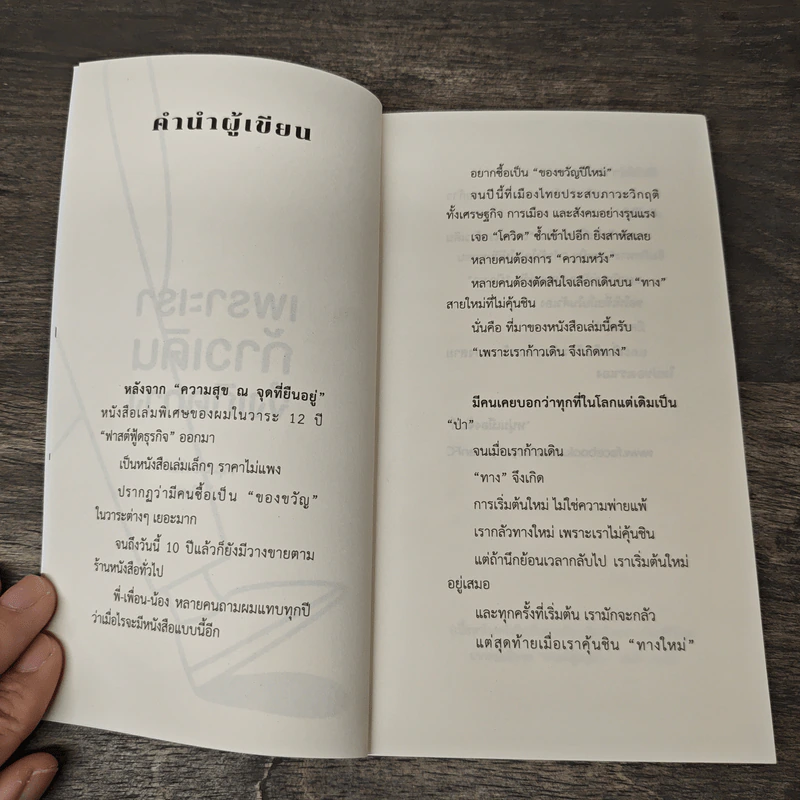 คำนำผู้เขียน
หลังจาก “ความสุข ณ จุดที่ยืนอยู่”
หนังสือเล่มพิเศษของผมในวาระ 12 ปี
“ฟาสต์ฟู้ดธุรกิจ” ออกมา
เป็นหนังสือเล่มเล็กๆ ราคาไม่แพง
ปรากฏว่ามีคนซื้อเป็น “ของขวัญ”
ในวาระต่างๆ เยอะมาก
จนถึงวันนี้ 10 ปีแล้วก็ยังมีวางขายตาม
ร้านหนังสือทั่วไป
พี่-เพื่อน-น้อง หลายคนถามผมแทบทุกปี
ว่าเมื่อไรจะมีหนังสือแบบนี้อีก
อยากซื้อเป็น “ของขวัญปีใหม่”
จนปีนี้ที่เมืองไทยประสบภาวะวิกฤติ
ทั้งเศรษฐกิจ การเมือง และสังคมอย่างรุนแรง
เจอ “โควิด” ซ้ำเข้าไปอีก ยิ่งสาหัสเลย
หลายคนต้องการ “ความหวัง”
หลายคนต้องตัดสินใจเลือกเดินบน “ทาง”
สายใหม่ที่ไม่คุ้นชิน
นั่นคือ ที่มาของหนังสือเล่มนี้ครับ
“เพราะเราก้าวเดิน จึงเกิดทาง”
มีคนเคยบอกว่าทุกที่ในโลกแต่เดิมเป็น
“ป่า”
จนเมื่อเราก้าวเดิน
“ทาง” จึงเกิด
การเริ่มต้นใหม่ ไม่ใช่ความพ่ายแพ้
เรากลัวทางใหม่ เพราะเราไม่คุ้นชิน
แต่ถ้านึกย้อนเวลากลับไป เราเริ่มต้นใหม่
อยู่เสมอ
และทุกครั้งที่เริ่มต้น เรามักจะกลัว
แต่สุดท้ายเมื่อเราคุ้นชิน “ทางใหม่”